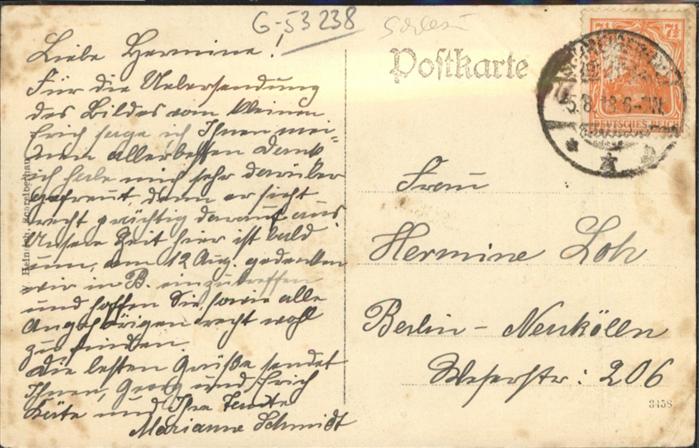 G-53238
Liebe Hermine!
Für die Uebersendung
des Bildes vom kleinen
Erich sage ich Ihnen mei-
nen allerbesten Dank
ich habe mich sehr darüber
gefreut, denn er sieht
recht prächtig darauf aus.
Unsere Zeit hier ist bald
um, am 12 Aug. gedenken
wir in B. einzutreffen
und hoffen Sie sowie alle
Angehörigen recht wohl
zu finden.
Die besten Grüße sendet
Ihnen, Georg und Erich
Käte und Ihre Tante
Marianne Schmidt
W. Heinrich,
Postkarte
7½
5.8.18.6-7N.
DEUTSCHES REICH
Frau
Hermine Loh
Berlin-Neukölln
Weserstr: 206
3458